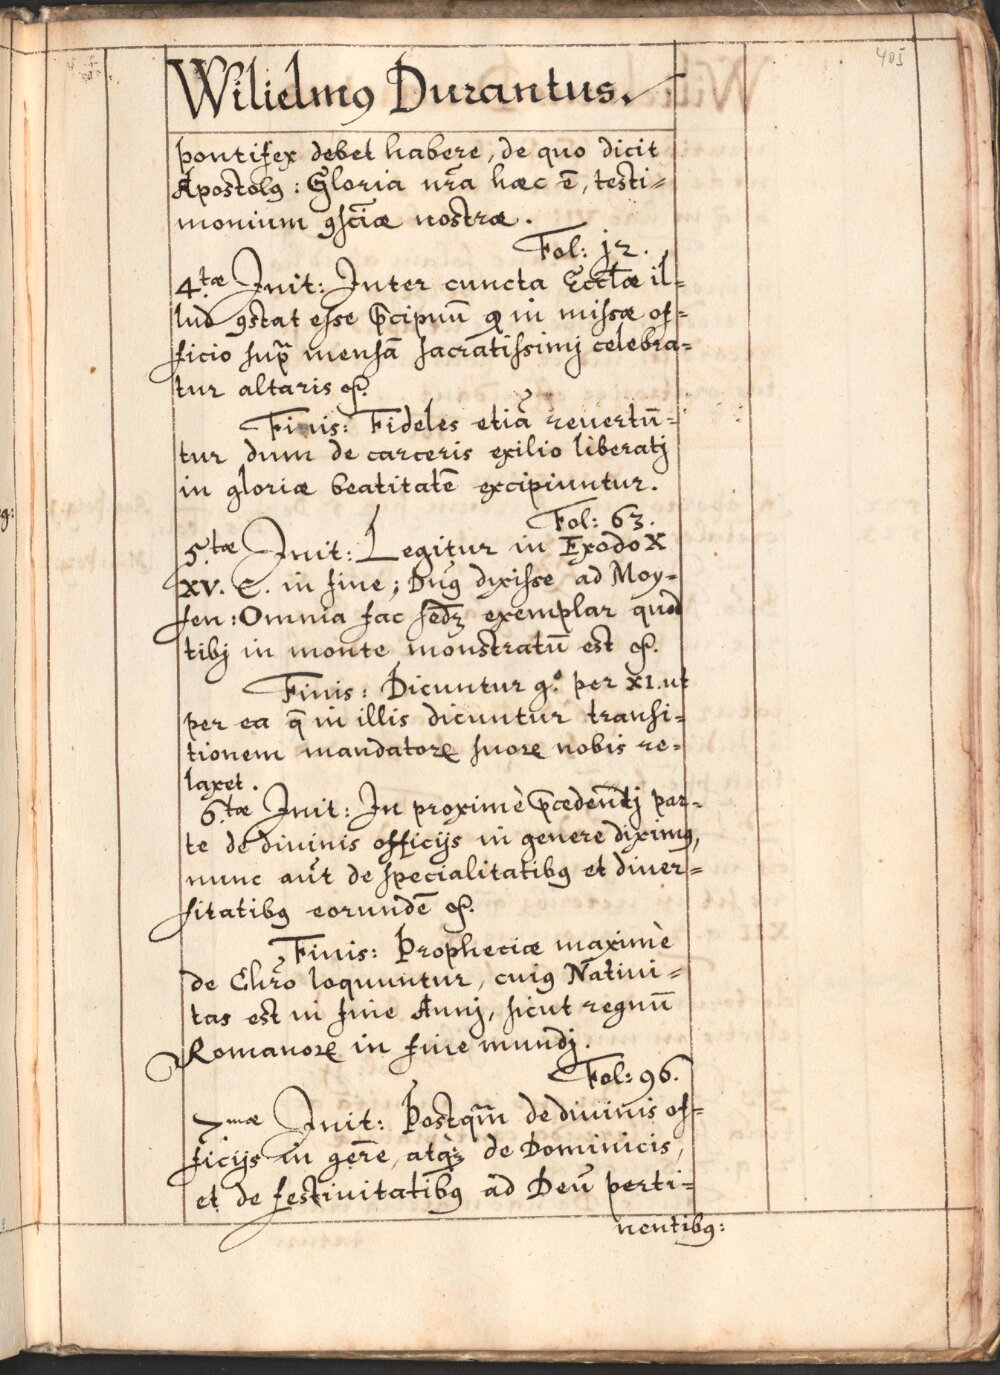 405
Wilielmꝰ Durantus.
pontifex debet habere, de quo dicit
Apostolꝰ: Gloria nr̃a hæc ē, testi=
monium ꝯsc̃iæ nostræ.
Fol: 12.
4.tæ Init: Inter cuncta Eccl̃æ il=
lud ꝯstat esse p̃cipuũ ꝙ in missæ of=
ficio sup̃ mensã sacratissimj celebra=
tur altaris &.
Finis: Fideles etiã reuertũ=
tur dum de carceris exilio liberatj
in gloriæ beatitatẽ excipiuntur.
Fol: 63.
5.tæ Init: Legitur in Exodo X
XV. C. in fine; Dñꝰ dixisse ad Moy=
sen: Omnia fac secdꝫ exemplar quod
tibj in monte monstratũ est &.
Finis: Dicuntur gͦ. per XI. ut
per ea q̃ in illis dicuntur transi=
tionem mandatorꝝ suorꝝ nobis re=
laxet.
6.tæ Init: In proximè p̃cedentj par=
te de diuinis officijs in genere diximꝰ,
nunc aũt de specialitatibꝰ et diuer=
sitatibꝰ eorundẽ &.
Finis: Propheciæ maximè
de Chr̃o loquuntur, cuiꝰ Natiui=
tas est in fine Annj, sicut regnũ
Romanorꝝ in fine mundj.
Fol: 96.
7mæ Init: Postqm̃ de diuinis of=
ficijs in gen̄re, atqꝫ de Dominicis,
et de festiuitatibꝰ ad Deũ perti=
nentibꝰ: